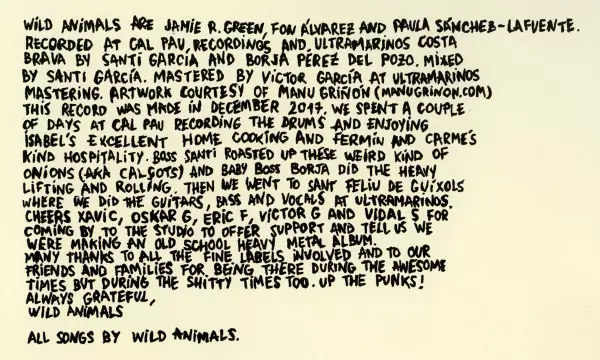 WILD ANIMALS ARE JAMIE R. GREEN, FON ÁLVAREZ AND PAULA SÁNCHEZ-LAFUENTE.
RECORDED AT CAL PAU RECORDINGS AND ULTRAMARINOS COSTA
BRAVA BY SANTI GARCÍA AND BORJA PÉREZ DEL POZO. MIXED
BY SANTI GARCÍA. MASTERED BY VICTOR GARCÍA AT ULTRAMARINOS
MASTERING. ARTWORK COURTESY OF MANU GRIÑON (MANUGRINON.COM)
THIS RECORD WAS MADE IN DECEMBER 2017. WE SPENT A COUPLE
OF DAYS AT CAL PAU RECORDING THE DRUMS AND ENJOYING
ISABEL'S EXCELLENT HOME COOKING AND FERMIN AND CARME'S
KIND HOSPITALITY. BOSS SANTI ROASTED UP THESE WEIRD KIND OF
ONIONS (AKA CALÇOTS) AND BABY BOSS BORJA DID THE HEAVY
LIFTING AND ROLLING. THEN WE WENT TO SANT FELIU DE GUÍXOLS
WHERE WE DID THE GUITARS, BASS AND VOCALS AT ULTRAMARINOS.
CHEERS XAVIC, OSKAR G, ERIC F, VÍCTOR G AND VIDAL S FOR
COMING BY TO THE STUDIO TO OFFER SUPPORT AND TELL US WE
WERE MAKING AN OLD SCHOOL HEAVY METAL ALBUM.
MANY THANKS TO ALL THE FINE LABELS INVOLVED AND TO OUR
FRIENDS AND FAMILIES FOR BEING THERE DURING THE AWESOME
TIMES BUT DURING THE SHITTY TIMES TOO. UP THE PUNKS!
ALWAYS GRATEFUL,
WILD ANIMALS
ALL SONGS BY WILD ANIMALS.